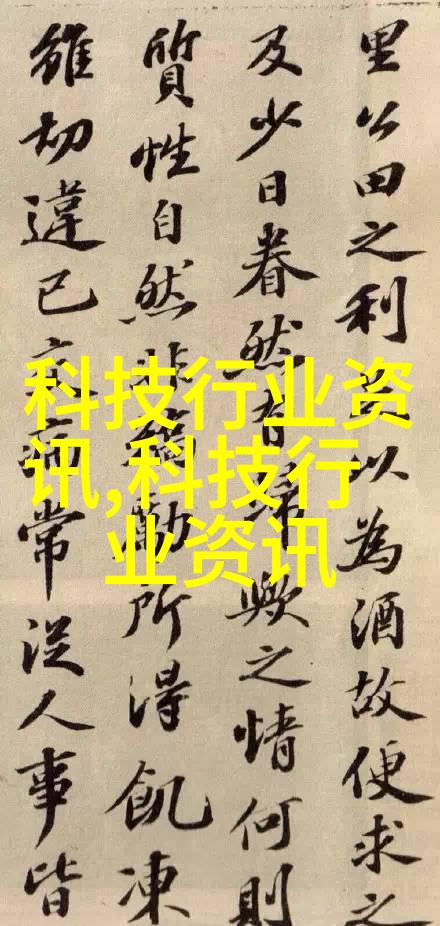 里公田之利以為酒故便求之
及少日眷然有歸歟之情何則
質性自然非矯勵所得飢凍
雖切違己交病常從人事皆
科技行业资
讯,科技行
业资讯